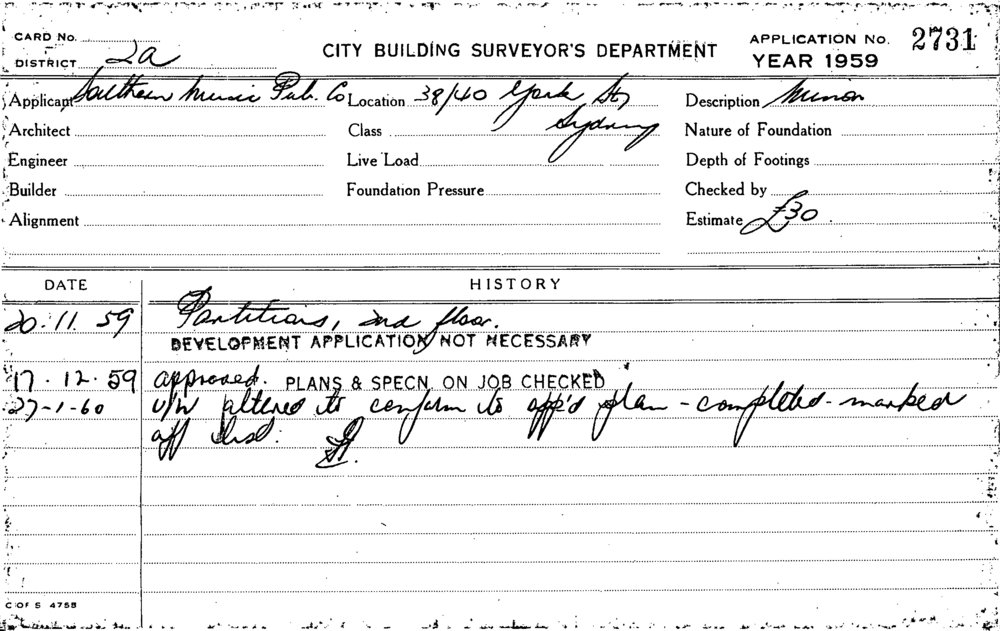 CARD No. CITY BUILDING SURVEYOR'S DEPARTMENT APPLICATION No. 2731
DISTRICT 2a YEAR 1959
Applicant Southern Music Pub. Co Location 38/40 York St, Description Minor
Architect Class Sydney Nature of Foundation
Engineer Live Load Depth of Footings
Builder Foundation Pressure Checked by
Alignment Estimate £30
DATE HISTORY
20.11.59 Partitions, 2nd floor.
DEVELOPMENT APPLICATION NOT NECESSARY
17.12.59 approved. PLANS & SPECN. ON JOB CHECKED
27-1-60 altered to conform to app'd plan - completed - marked
off
C OF S 475B